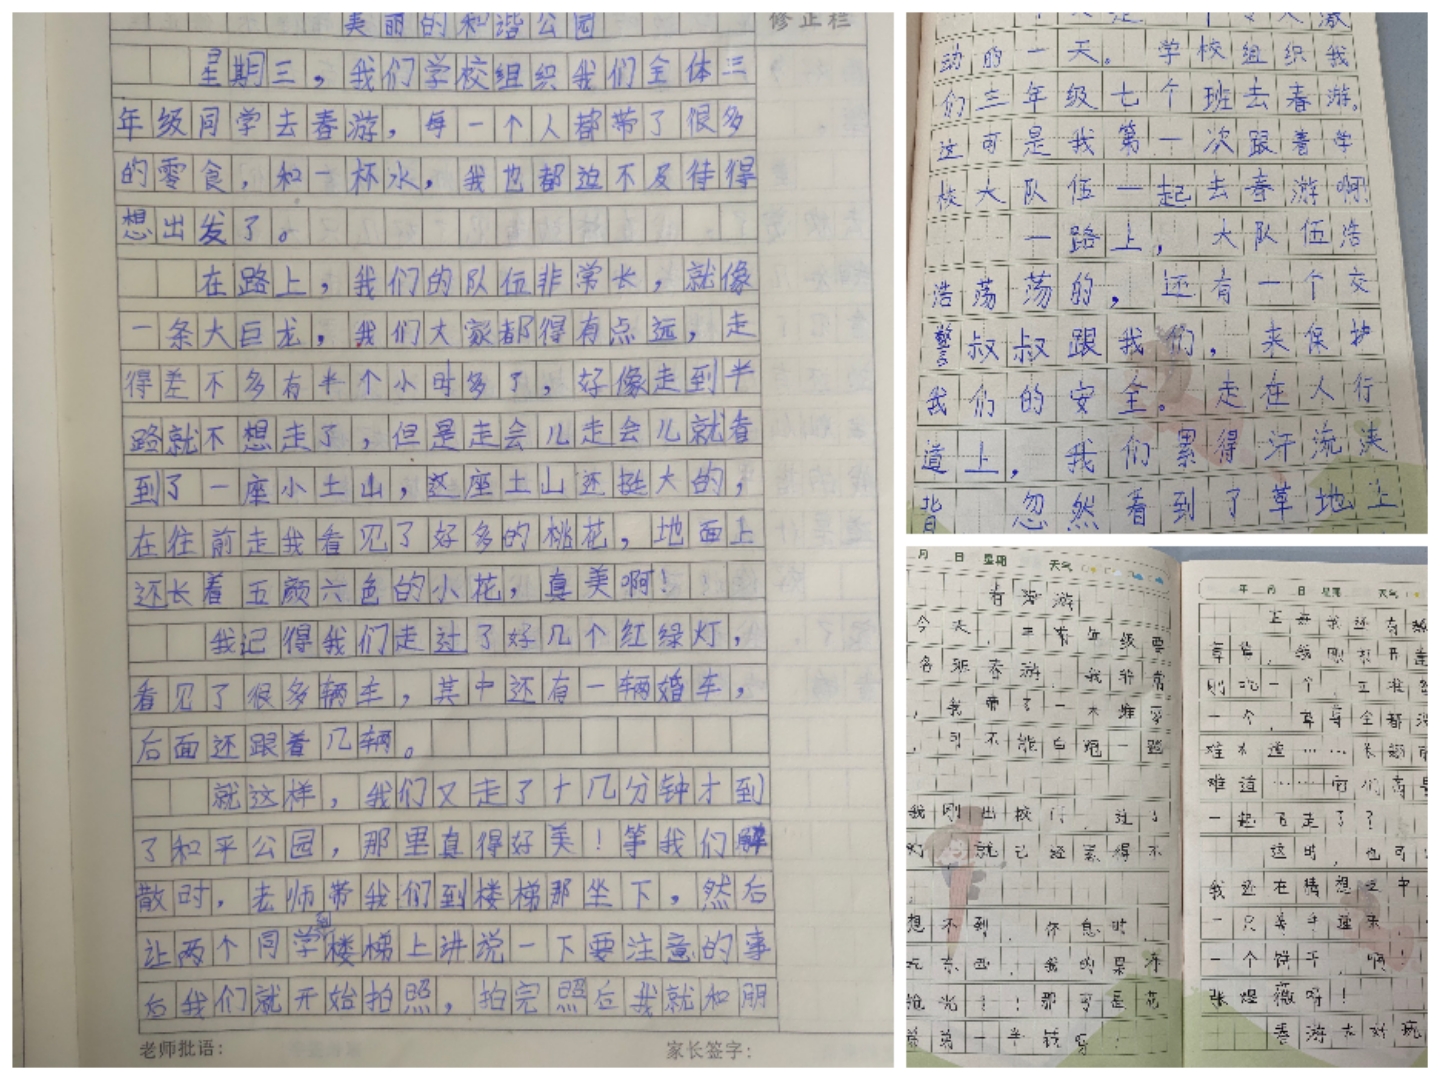 美丽的和谐公园
修正栏
星期三，我们学校组织我们全体三
年级同学去春游，每一个人都带了很多
的零食，和一杯水，我也都迫不及待得
想出发了。
在路上，我们的队伍非常长，就像
一条大巨龙，我们大家都得有点远，走
得差不多有半个小时多了，好像走到半
路就不想走了，但是走会儿走会儿就看
到了一座小土山，这座土山还挺大的，
在往前走我看见了好多的桃花，地面上
还长着五颜六色的小花，真美啊！
我记得我们走过了好几个红绿灯，
看见了很多辆车，其中还有一辆婚车，
后面还跟着几辆。
就这样，我们又走了十几分钟才到
了和平公园，那里真得好美！等我们解
散时，老师带我们到楼梯那坐下，然后
让两个同学到楼梯上讲说一下要注意的事
后我们就开始拍照，拍完照后我就和朋
老师批语：
家长签字：
动的一天。学校组织我
们三年级七个班去春游。
这可是我第一次跟着学
校大队伍一起去春游啊!
一路上，大队伍浩
浩荡荡的，还有一个交
警叔叔跟我们，来保护
我们的安全。走在人行
道上，我们累得汗流浃
背 忽然看到了草地上
月 日 星期 天气
春游
今天，三有年级要
各班春游，我非常
，我带了一大堆零
，可不能白跑一趟
我刚出校门，过了
灯 就已经累得不
想不到，休息时，
吃东西，我的果冻
抢光！！那可是花
第一半钱
年 月 日 星期 天气
草
一个，草莓全都没
难不道……长翅
难道……它们商量
一起飞走了？
这时，也可
我还在猜想之中
一只美手递来
一个饼干，啊！
张煜薇呀！
春游太好玩